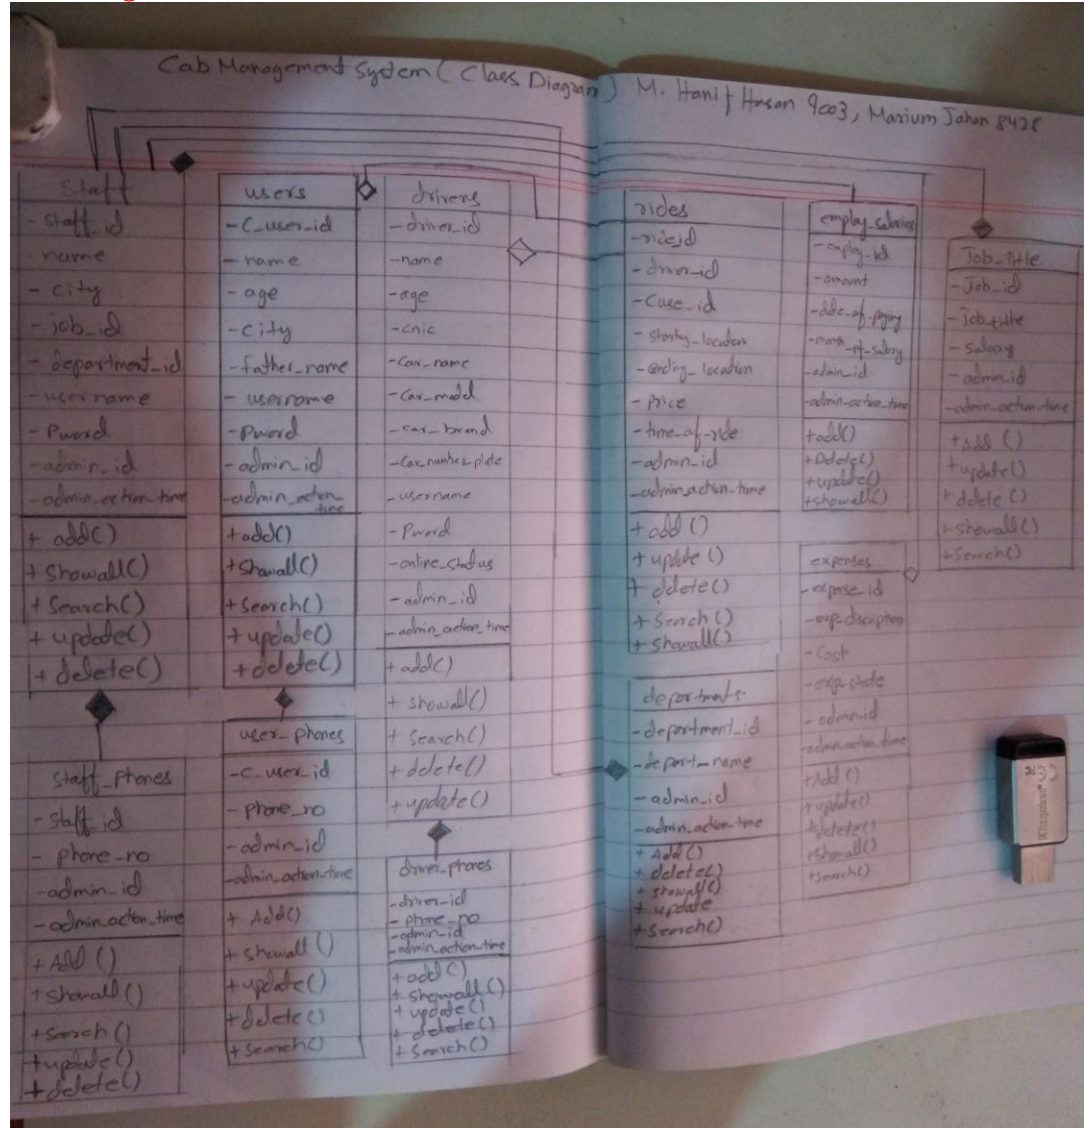 Cab Management System ( Class Diagram ) M. Hanif Hasan 9003, Marium Jahan 8428
Staff
- staff_id
- name
- city
- job_id
- department_id
- username
- Pword
- admin_id
- admin_action_time
+ add()
+ Showall()
+ Search()
+ update()
+ delete()
staff_Phones
- staff_id
- phone_no
- admin_id
- admin_action_time
+ Add ()
+ Showall ()
+ Search ()
+ update()
+ delete()
users
- C_user_id
- name
- age
- City
- father_name
- username
- Pword
- admin_id
- admin_action_time
+ add()
+ Showall()
+ Search()
+ update()
+ delete()
user_phones
- C_user_id
- phone_no
- admin_id
- admin_action_time
+ Add()
+ Showall ()
+ update()
+ delete()
+ Search()
drivers
- driver_id
- name
- age
- cnic
- Car_name
- Car_model
- car_brand
- Car_number_plate
- username
- Pword
- online_status
- admin_id
- admin_action_time
+ add()
+ showall()
+ Search()
+ delete()
+ update()
driver_phones
- driver_id
- phone_no
- admin_id
- admin_action_time
+ add()
+ Showall()
+ update()
+ delete()
+ Search()
rides
- ride_id
- driver_id
- Cuse_id
- location
- ending_location
- Price
- time_of_ride
- admin_id
- admin_action_time
+ add ()
+ update ()
+ delete()
+ Search ()
+ Showall()
departments
- department_id
- depart_name
- admin_id
- admin_action_time
+ Add()
+ delete()
+ showall()
+ update
+ Search()
employ_salaries
- employ_id
- amount
- date_of_paying
- month_of_salary
- admin_id
- admin_action_time
+ add()
+ Delete()
+ update()
+ Showall()
expenses
- expense_id
- Cost
- admin_id
- admin_action_time
+ Add ()
+ update()
+ delete()
+ Showall()
+ Search()
Job_Title
- Job_id
- job_title
- Salary
- admin_id
- admin_action_time
+ Add ()
+ update()
+ delete ()
+ Showall()
+ Search()
Kingston